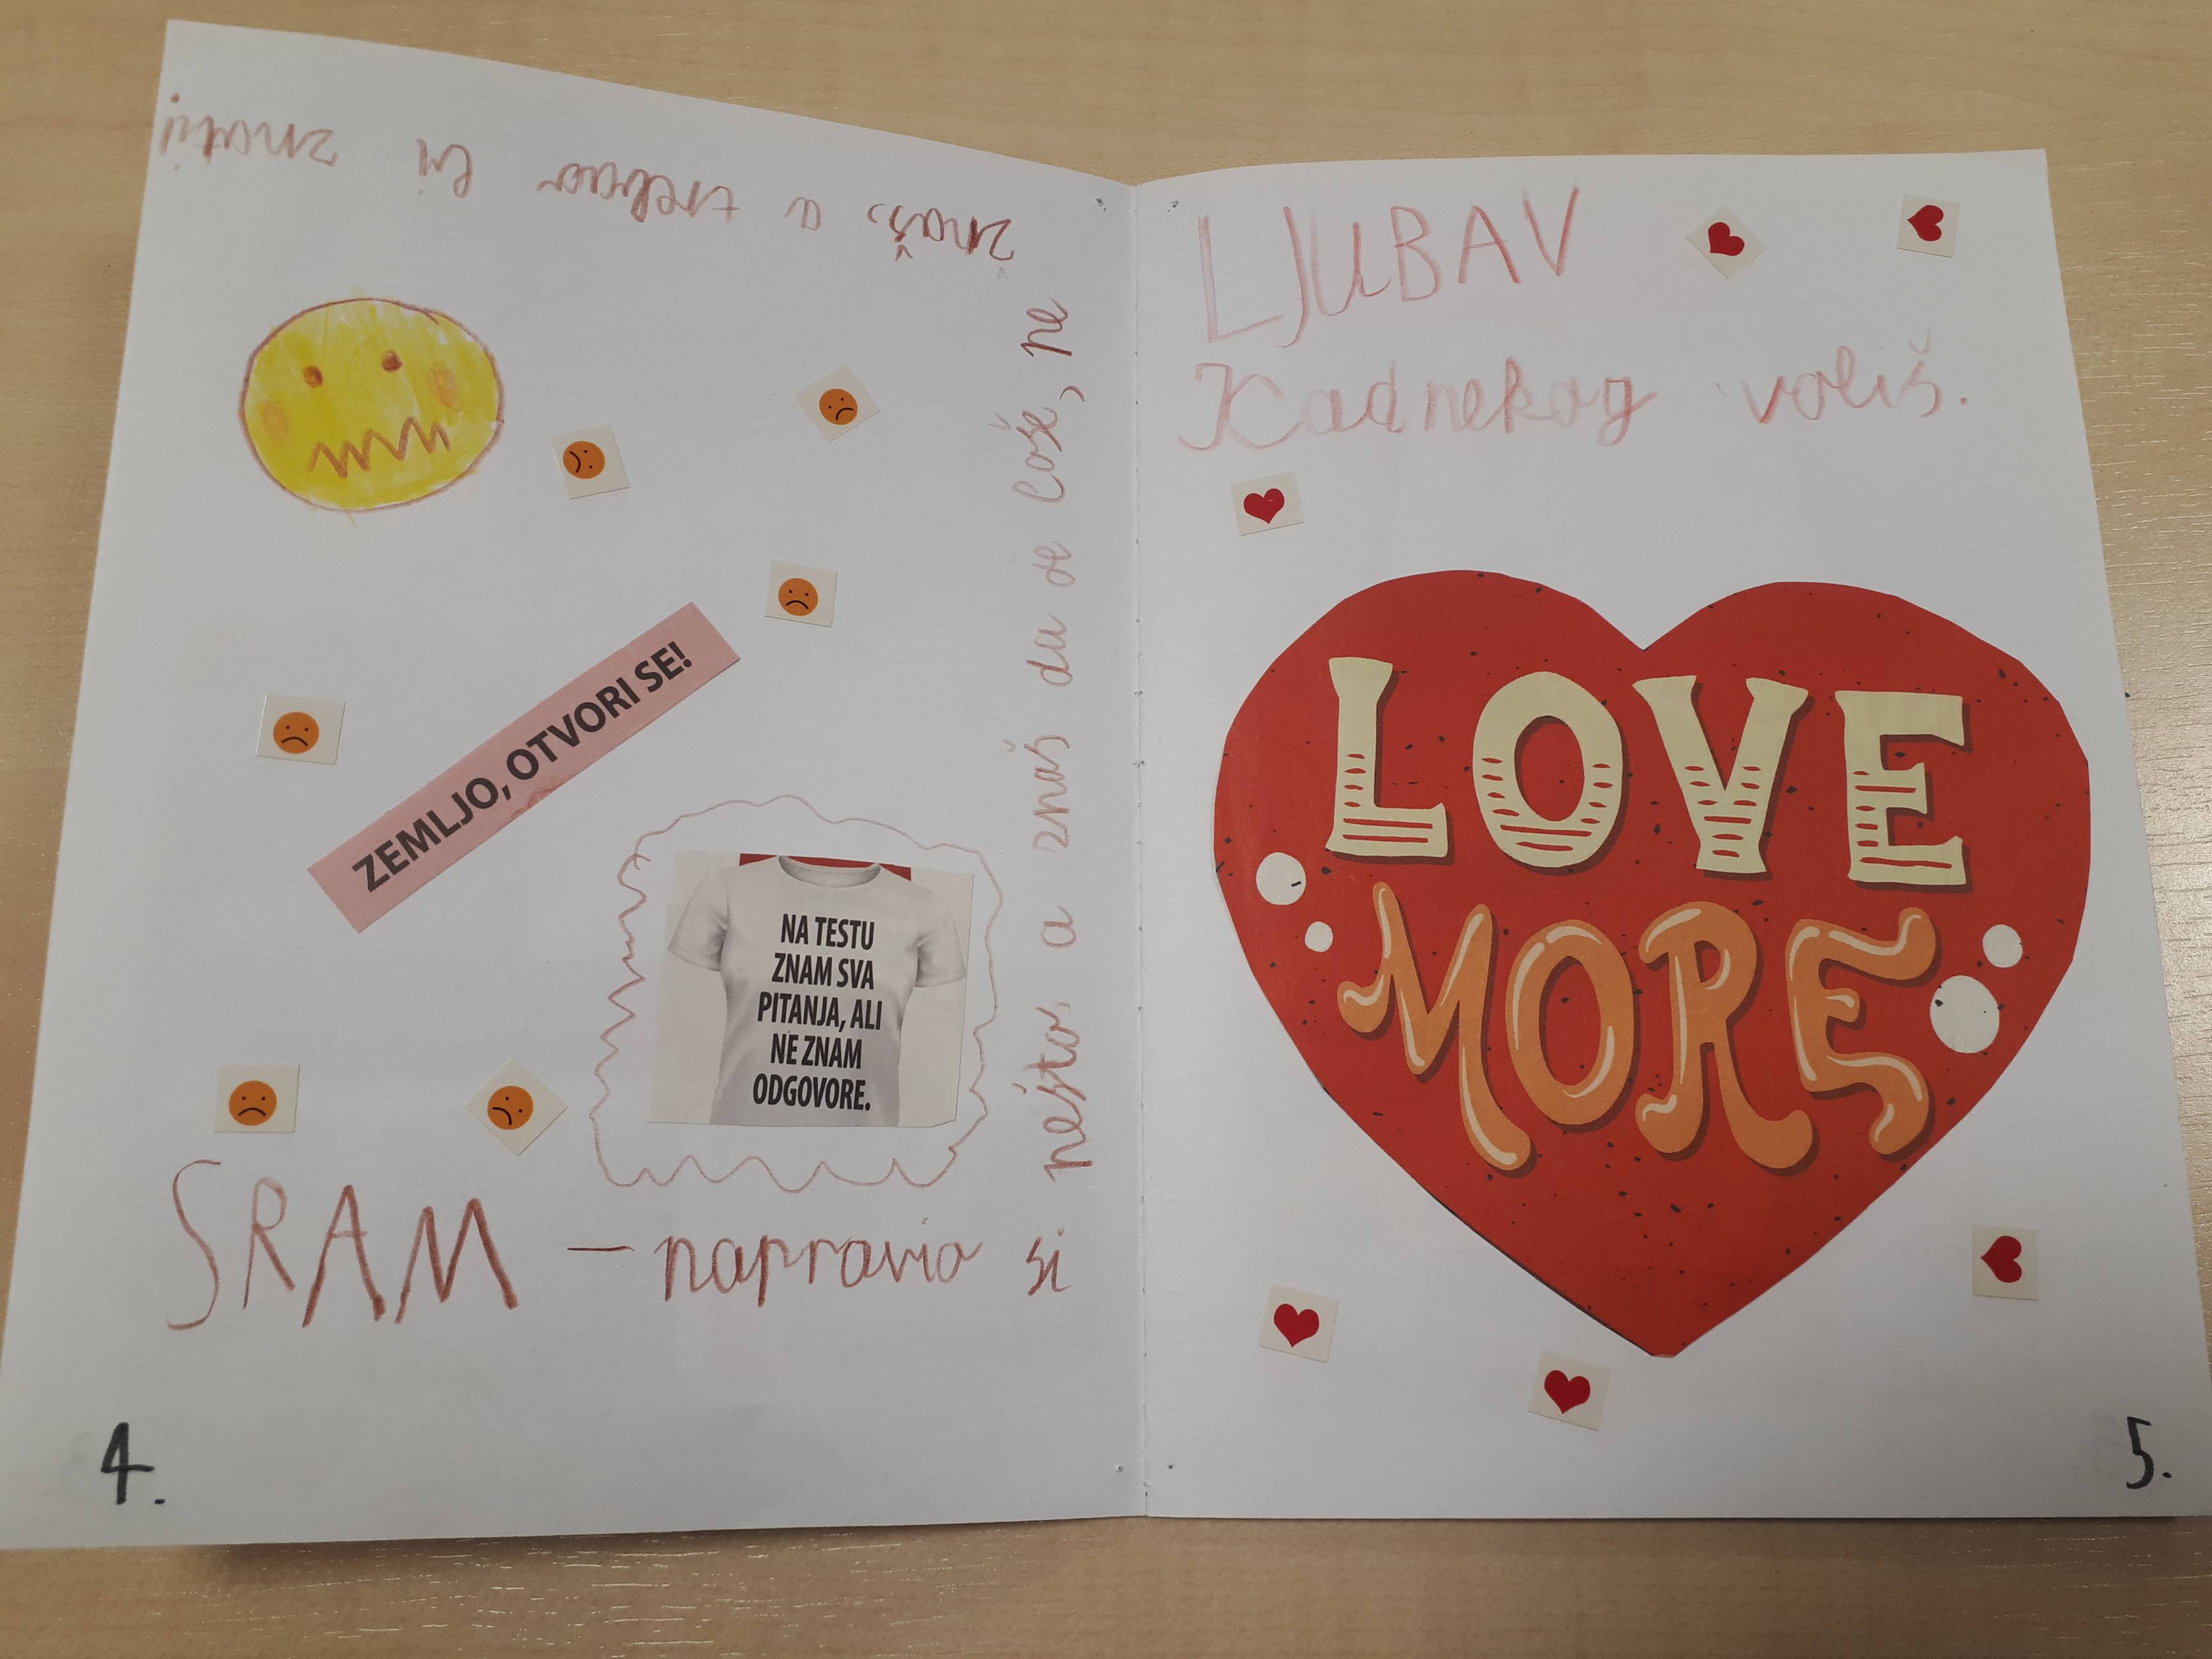 SRAM – napravio si
nešto a znaš da je loše, ne
znaš, a trebao bi znati!
ZEMLJO, OTVORI SE!
NA TESTU
ZNAM SVA
PITANJA, ALI
NE ZNAM
ODGOVORE.
4.
LJUBAV
Kad nekog voliš.
LOVE
MORE
5.